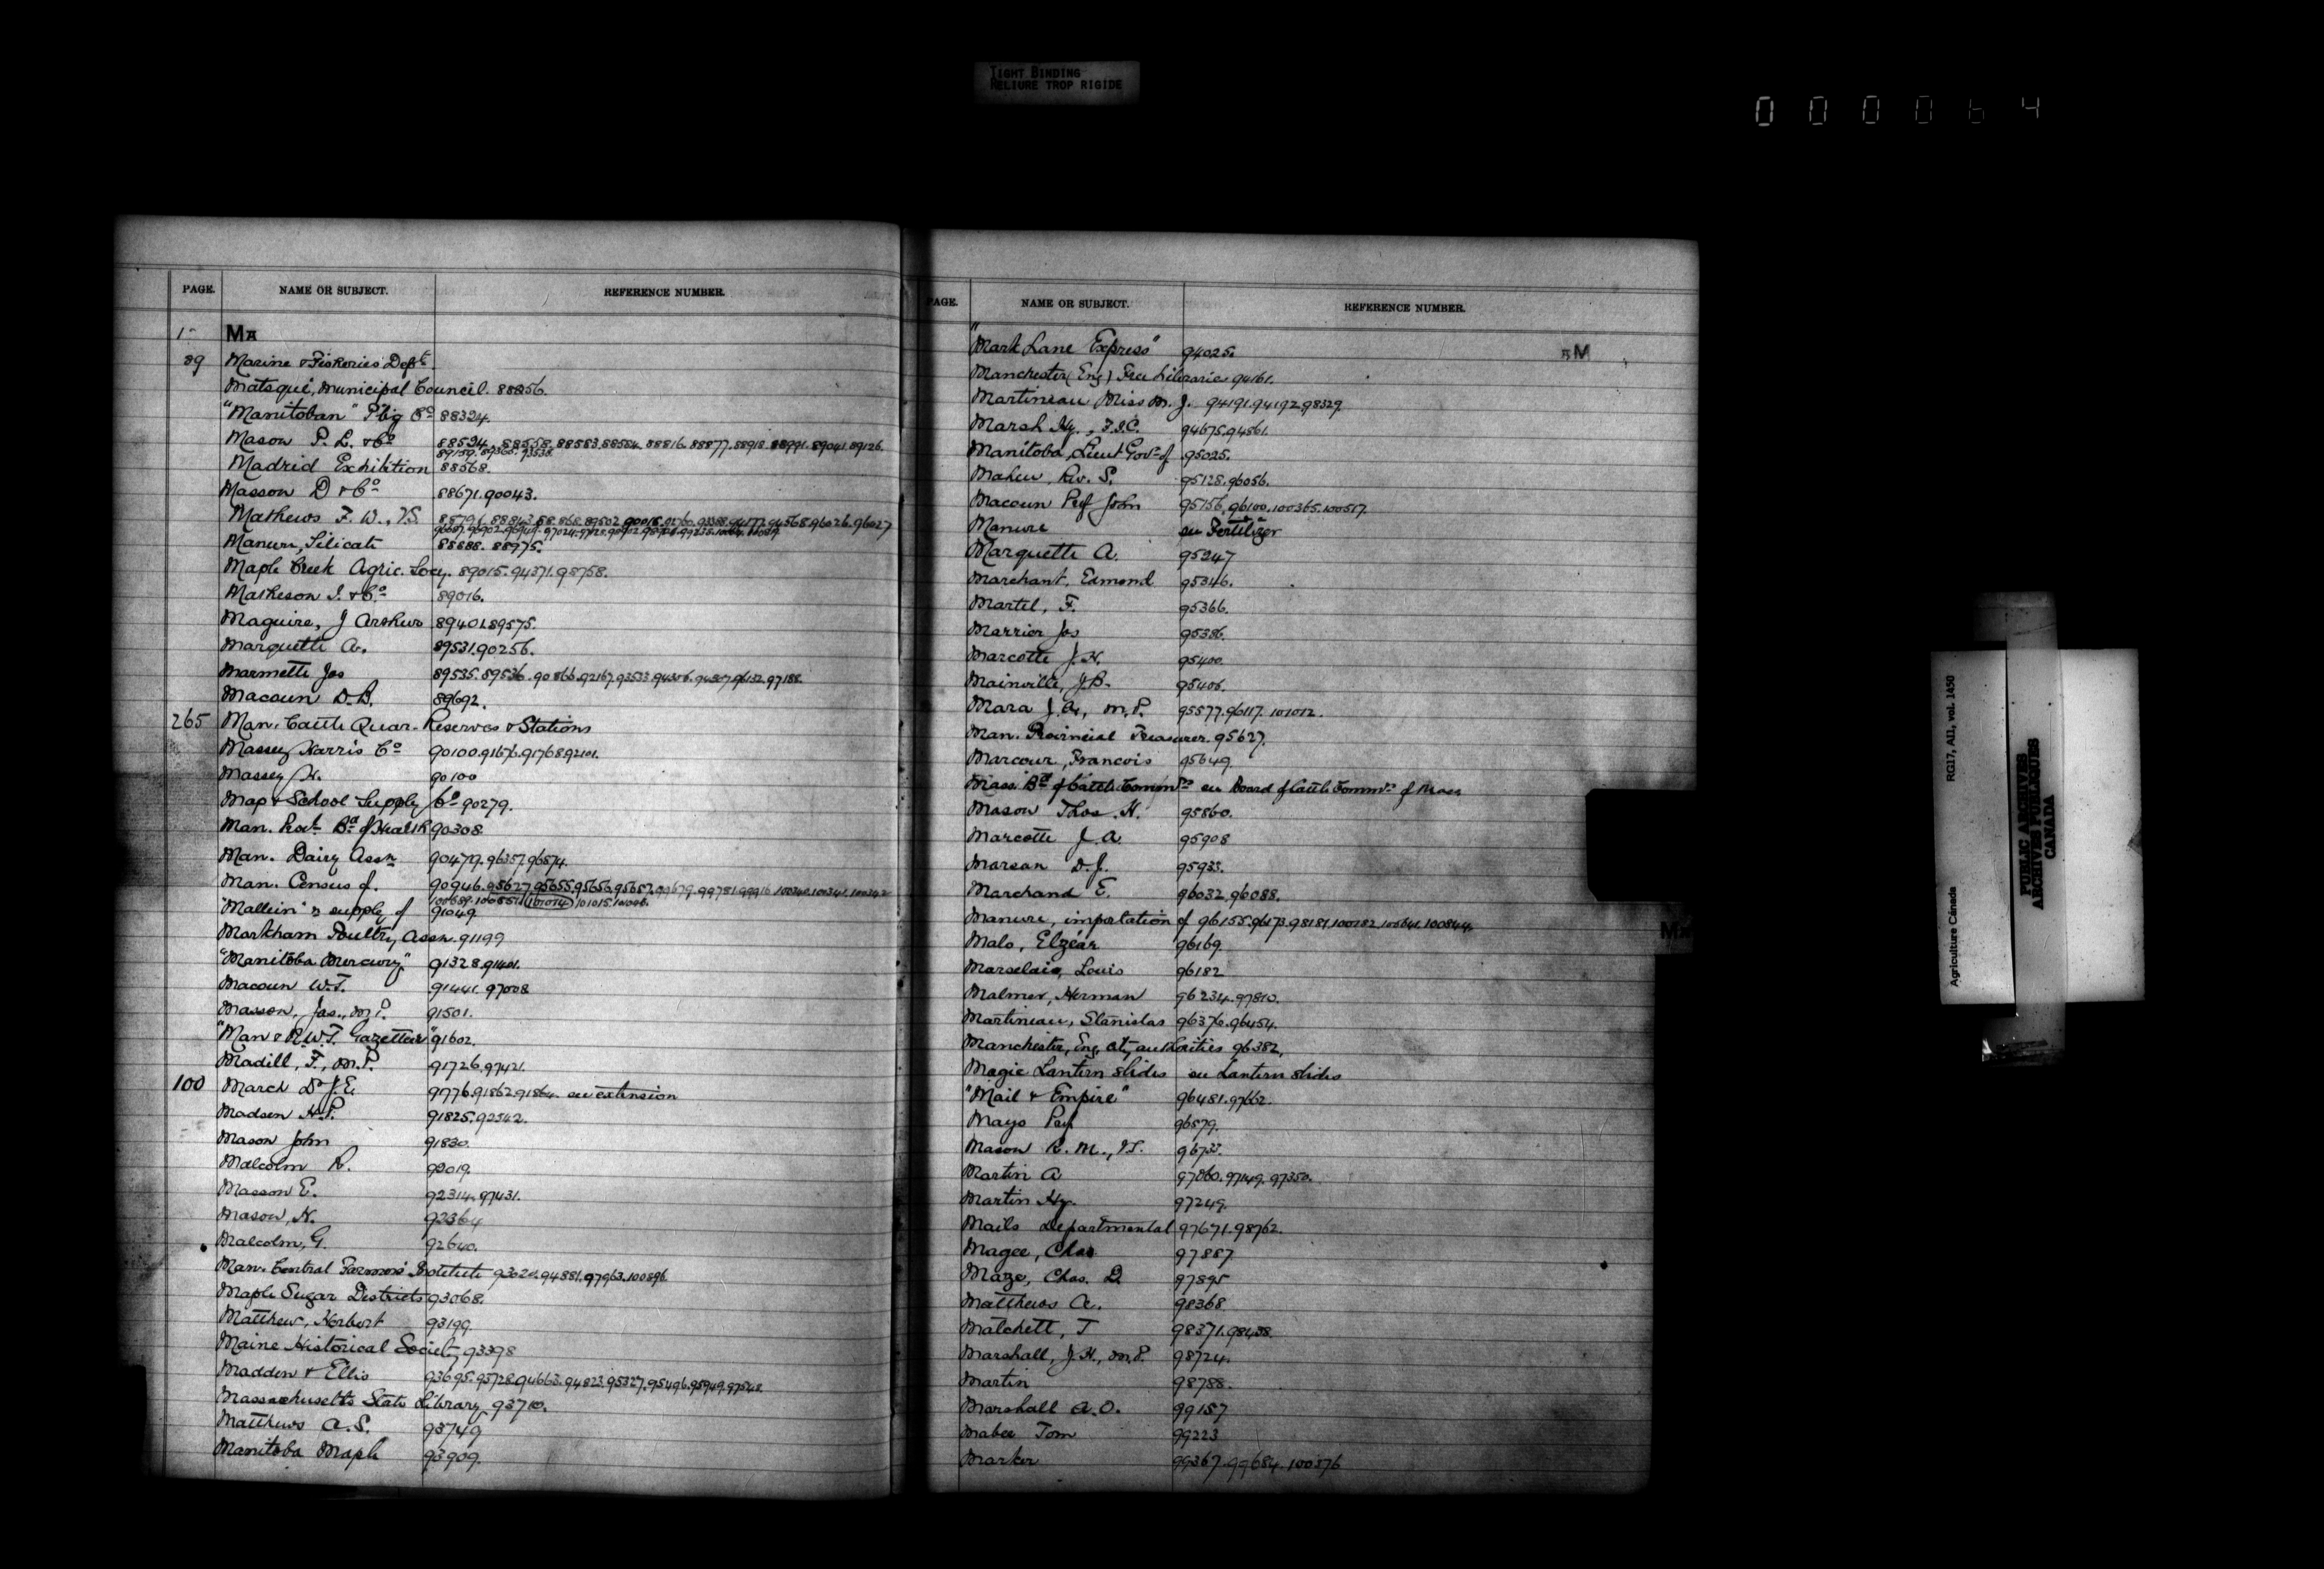 TIGHT BINDING
RELIURE TROP RIGIDE
000064
PAGE. NAME OR SUBJECT. REFERENCE NUMBER.
1 MA
89 Marine & Fisheries Dept.
Matsqui, Municipal Council. 88256.
"Manitoban" P'b'g Co 88324.
Mason P. L. & Co 88524. 88558. 88583. 88584. 88816. 88877. 88918. 88991. 89041. 89126.
89159. 89365. 93538.
Madrid Exhibition 88568.
Masson D & Co 88671. 90043.
Mathews F. W., V.S.
Manure, Silicate 88888. 88975.
Maple Creek Agric. Socy. 89015. 94371. 98758.
Matheson J. & Co 89016.
Maguire, J Arthur 89401. 89575.
Marquette A. 89531. 90256.
Marmette Jos 89535. 89536. 90866. 92167. 93533. 94386. 94807. 96132. 97188.
Macoun D. B. 89692.
265 Man. Cattle Quar. Reserves & Stations
Massey Harris Co 90100. 91676. 91768. 92101.
Massey H. 90100
Map & School Supply Co 90279.
Man. Provl. Bd of Health 90308.
Man. Dairy Assn 90479. 96357. 96574.
Man. Census of. 90946. 95627. 95655. 95656. 95657. 99679. 99781. 99916. 100340. 100341. 100342
101014 101015.
"Mallein" supply of 91049
Markham Poultry Assn. 91199
"Manitoba Mercury" 91328. 91401.
Macoun W. T. 91441. 97008
Masson, Jas., M.P. 91501.
"Man & N.W.T. Gazetteer" 91602.
Madill, F., M.P. 91726. 97421.
100 March Dr J. E. 91776. 91862. 91864. see extension
Madsen H. P. 91825. 92542.
Mason John 91830.
Malcolm R. 92019.
Masson E. 92314. 97431.
Mason, H. 92364
Malcolm, G. 92640.
Man. Central Farmers' Institute 93020. 94881. 97963. 100896.
Maple Sugar Districts 93068.
Matthew, Herbert 93199
Maine Historical Society 93398
Madden & Ellis 93695. 93728. 94663. 94823. 95327. 95496. 95949. 97548.
Massachusetts State Library 93710.
Matthews A. S. 93749
Manitoba Maple 93909.
PAGE. NAME OR SUBJECT. REFERENCE NUMBER.
"Mark Lane Express" 94025. M
Manchester (Eng) Free Libraries 94161.
Martineau Miss M. J. 94191. 94192. 98329
Marsh Hy., F.S.C. 94675. 94861.
Manitoba, Lieut Govr of 95025.
Maheu, Rev. S. 95128. 96056.
Macoun Prof John 95156. 96100. 100365. 100517.
Manure see Fertilizer
Marquette A. 95247
Marchant, Edmond 95346.
Martel, F. 95366.
Marrier Jos 95386.
Marcotte J. H. 95400.
Mainville, J. B. 95406.
Mara J. A., M.P. 95577. 96117. 101012.
Man. Provincial Treasurer. 95627.
Marcour, Francois 95649.
Mass. Bd of Cattle Commrs see Board of Cattle Commrs of Mass
Mason Thos. H. 95860.
Marcotte J. A. 95908
Marsan D. J. 95933.
Marchand E. 96032. 96088.
Manure, importation of 96155. 96173. 98181. 100182. 100641. 100844.
Malo, Elzéar 96169.
Marselais, Louis 96182
Malmer, Herman 96234. 97810.
Martineau, Stanislas 96376. 96454.
Manchester, Eng, city authorities 96382.
Magic Lantern Slides see Lantern Slides
"Mail & Empire" 96481. 97662.
Mayo Prof 96579.
Mason R. M., V.S. 96733.
Martin A 97060. 97149. 97350.
Martin Hy. 97249.
Mails Departmental 97671. 98762.
Magee, Chas 97887
Maze, Chas. D. 97895
Matthews A. 98368
Matchett, T 98371. 98438.
Marshall, J. H., M.P. 98724.
Martin 98788.
Marshall A. O. 99157
Mabee Tom 99223
Marker 99367. 99684. 100376
Agriculture Canada RG17, AII, vol. 1450
PUBLIC ARCHIVES
ARCHIVES PUBLIQUES
CANADA